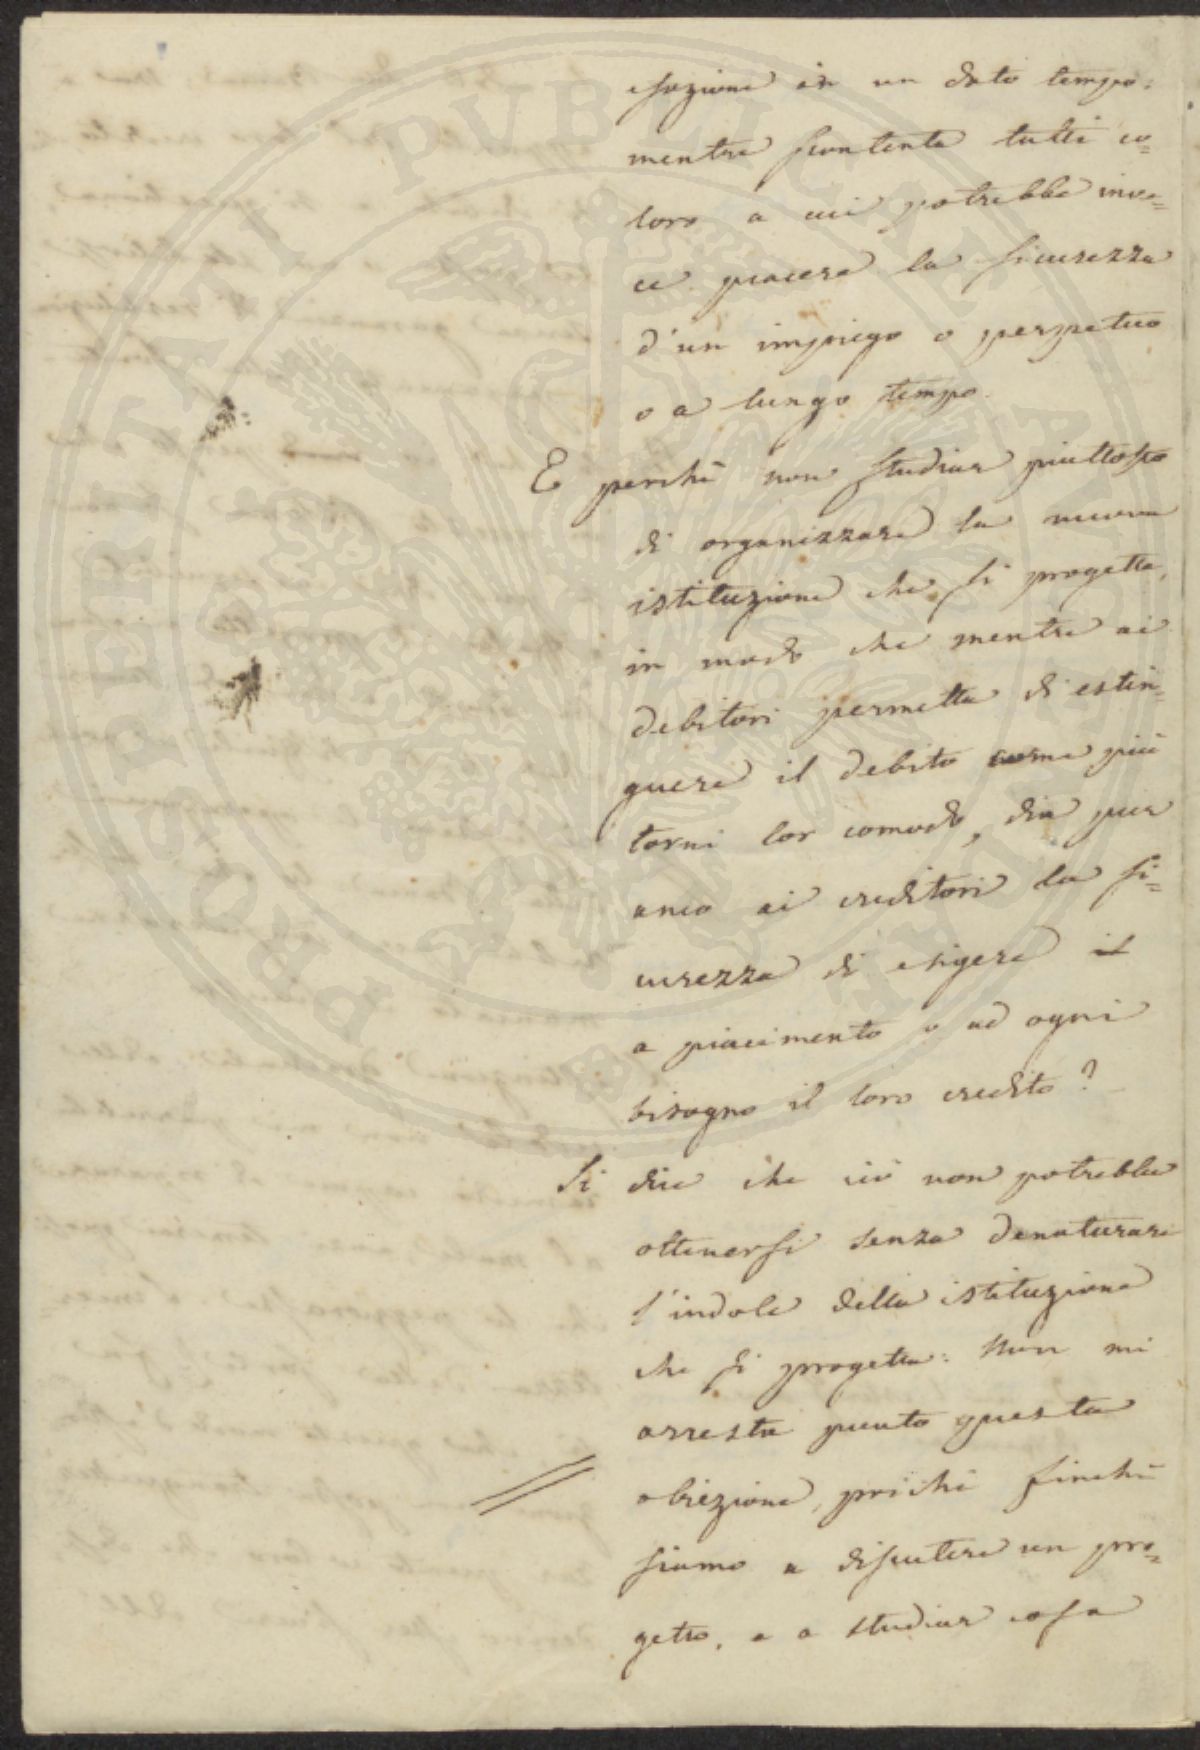 esazione in un dato tempo:
mentre scontenta tutti co=
loro a cui potrebbe inve=
ce piacere la sicurezza
d'un impiego o perpetuo
o a lungo tempo.
E perchè non studiar piuttosto
di organizzare la nuova
istituzione che si progetta,
in modo che mentre ai
debitori permetta di estin=
guere il debito come più
torni lor comodo, dia pur
anco ai creditori la si=
curezza di esigere il
a piacimento o ad ogni
bisogno il loro credito?
Si dice che ciò non potrebbe
ottenersi senza denaturare
l'indole della istituzione
che si progetta: Non mi
arresta punto questa
obiezione, poichè finchè
siamo a discutere un pro=
getto, e a studiar cosa
PROSPERITATI PVBLICAE AVGENDAE